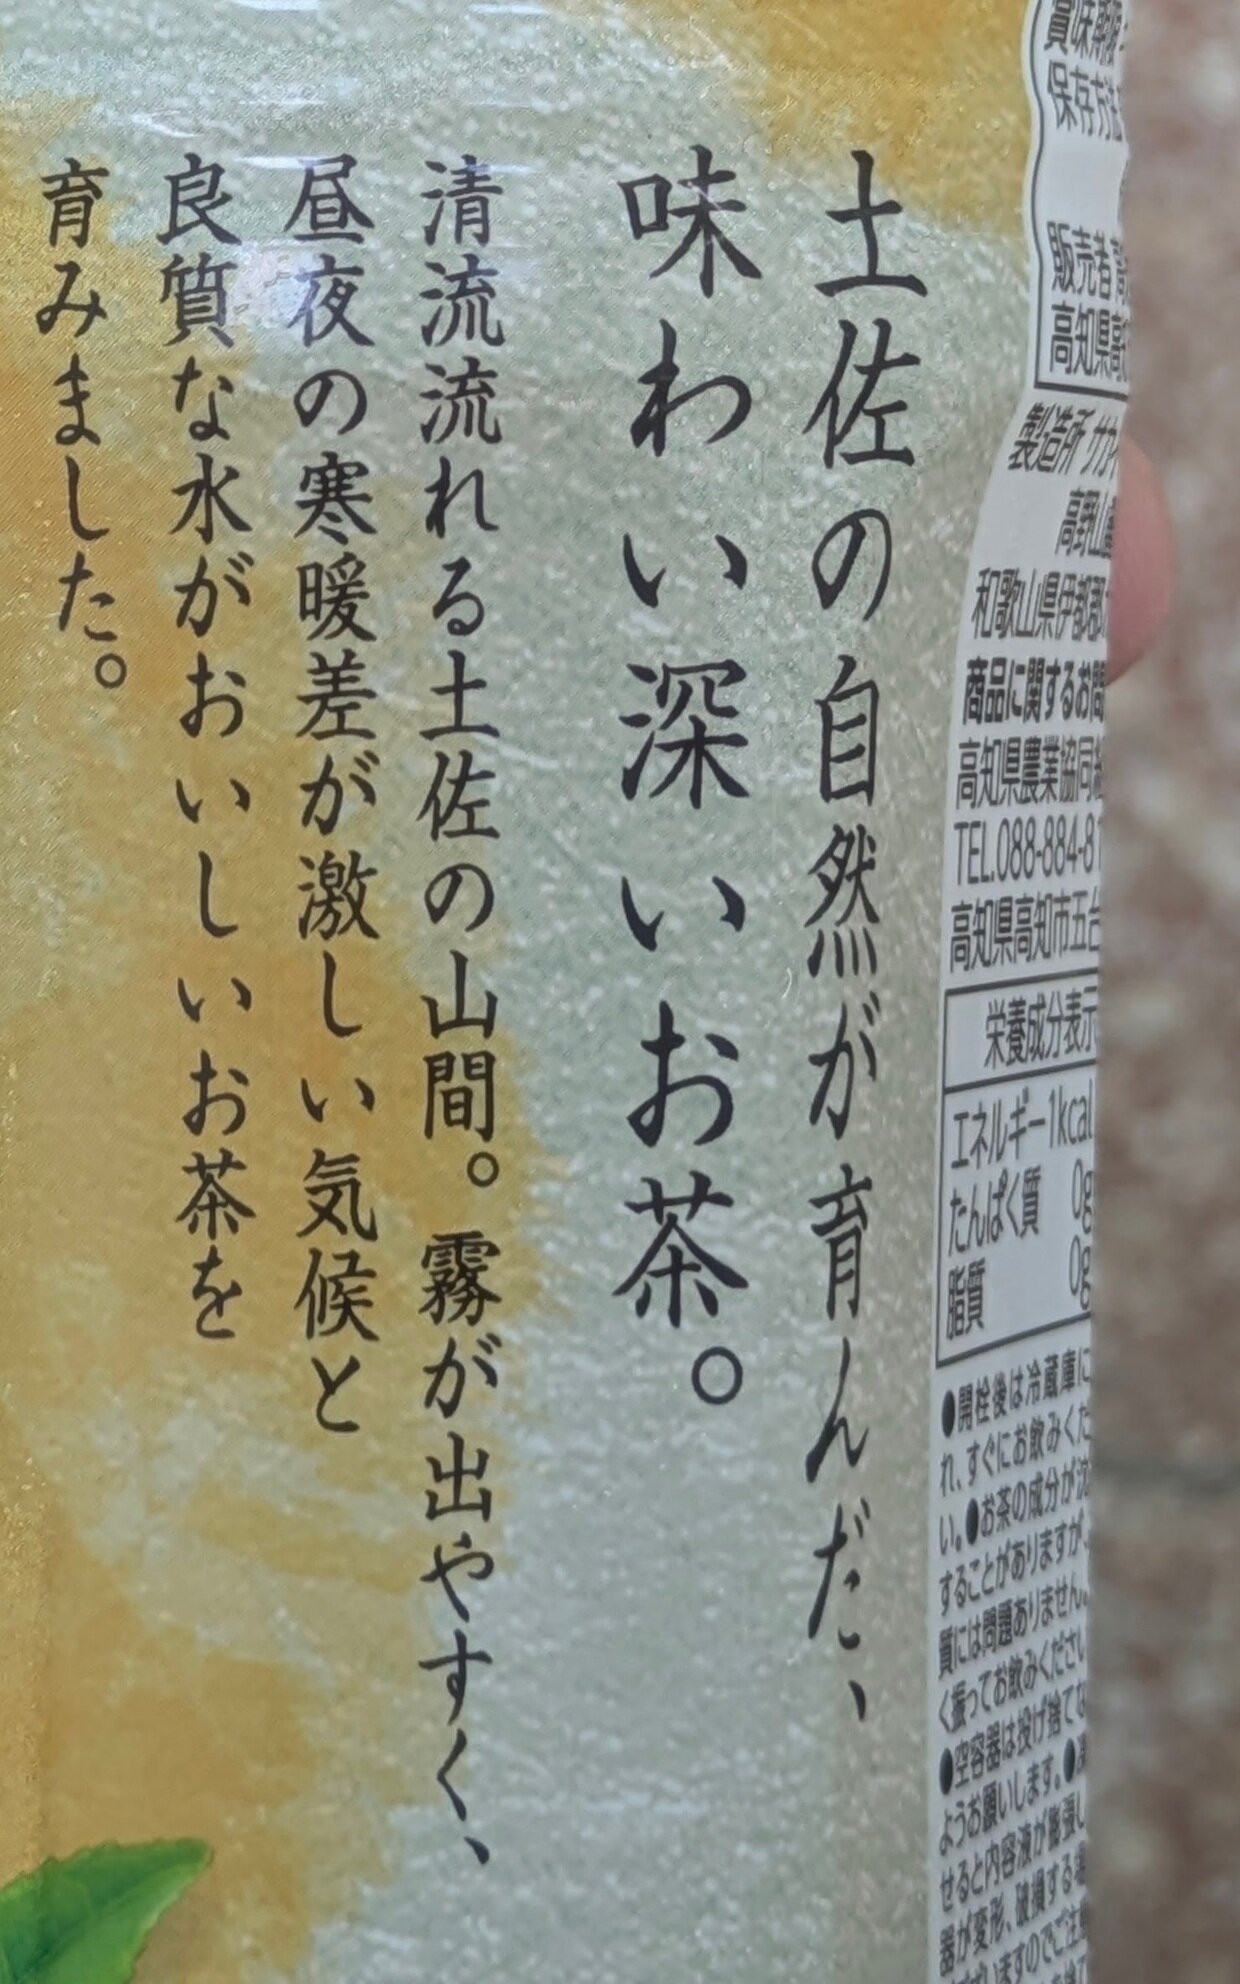 土佐の自然が育んだ、
味わい深いお茶。
清流流れる土佐の山間。霧が出やすく、
昼夜の寒暖差が激しい気候と
良質な水がおいしいお茶を
育みました。
賞味期限
保存方法
販売者
高知県高
製造所 サカイ
高野山
和歌山県伊都郡
商品に関するお問
高知県農業協同組
TEL.088-884-81
高知県高知市五台
栄養成分表示
エネルギー1kcal
たんぱく質 0g
脂質 0g
●開栓後は冷蔵庫に
れ、すぐにお飲みくだ
い。●お茶の成分が沈
することがありますが、
質には問題ありません。
く振ってお飲みください
●空容器は投げ捨てな
ようお願いします。●凍
せると内容液が膨張し
器が変形、破損する場